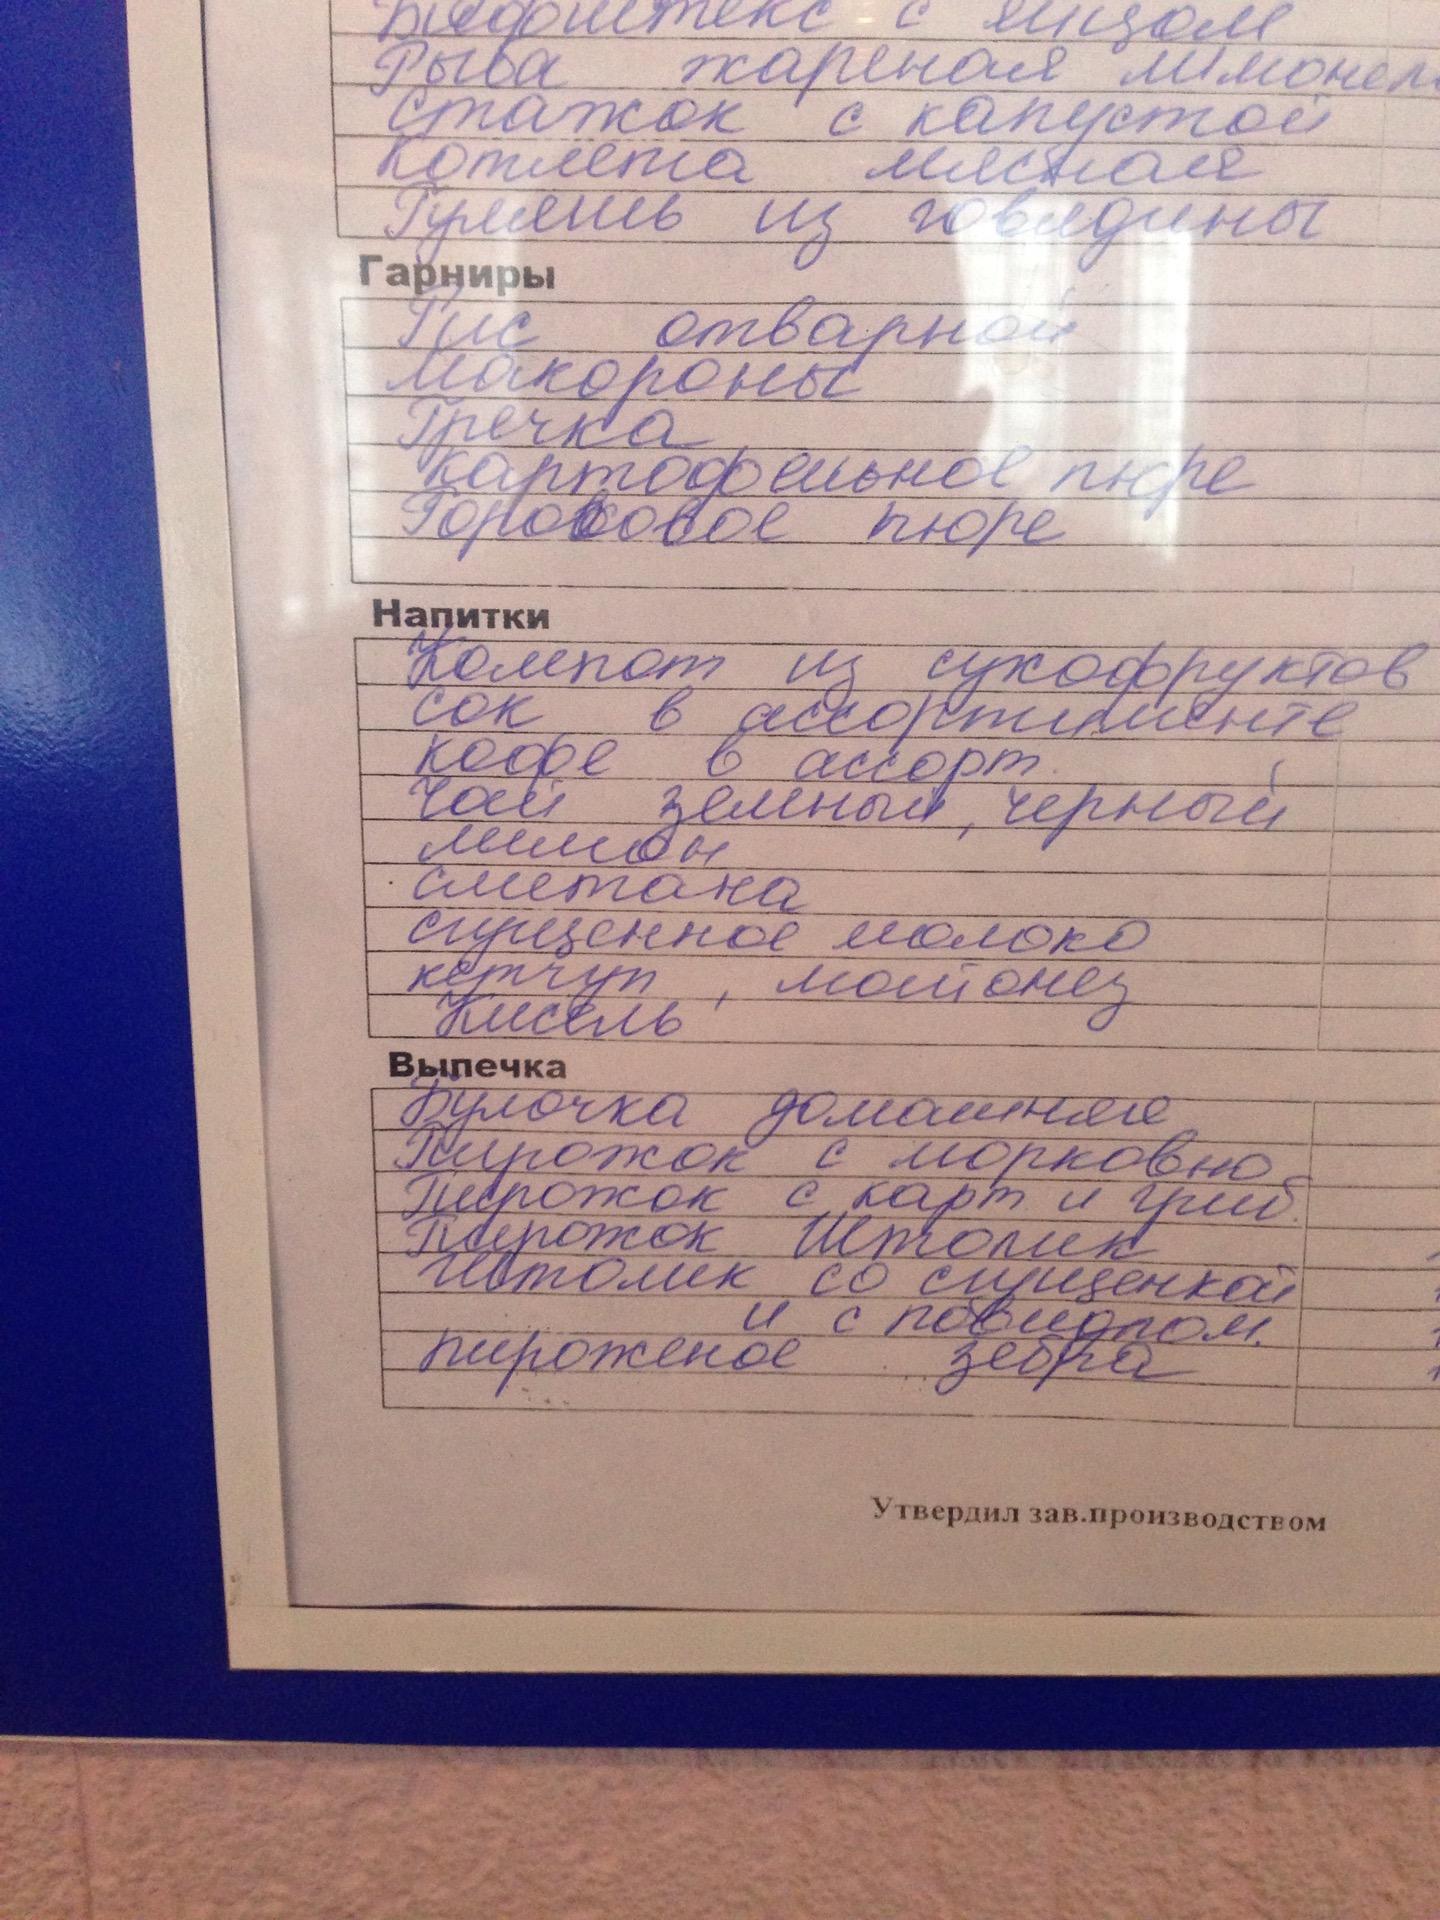 Бифштекс с яйцом
Рыба жареная лимонелла
Стажок с капустой
Котлета мясная
Гуляшь из говядины
Гарниры
Рис отварной
Макороны
Гречка
Картофельное пюре
Гороховое пюре
Напитки
Компот из сухофруктов
сок в ассортименте
кофе в ассорт.
Чай зеленый, черный
лимон
сметана
сгущенное молоко
кетчуп, майонез
Кисель
Выпечка
Булочка домашняя
Пирожок с морковью
Пирожок с карт и гриб.
Пирожок Штолик
Штолик со сгущенкой
и с повидлом.
пироженое зебра
Утвердил зав.производством